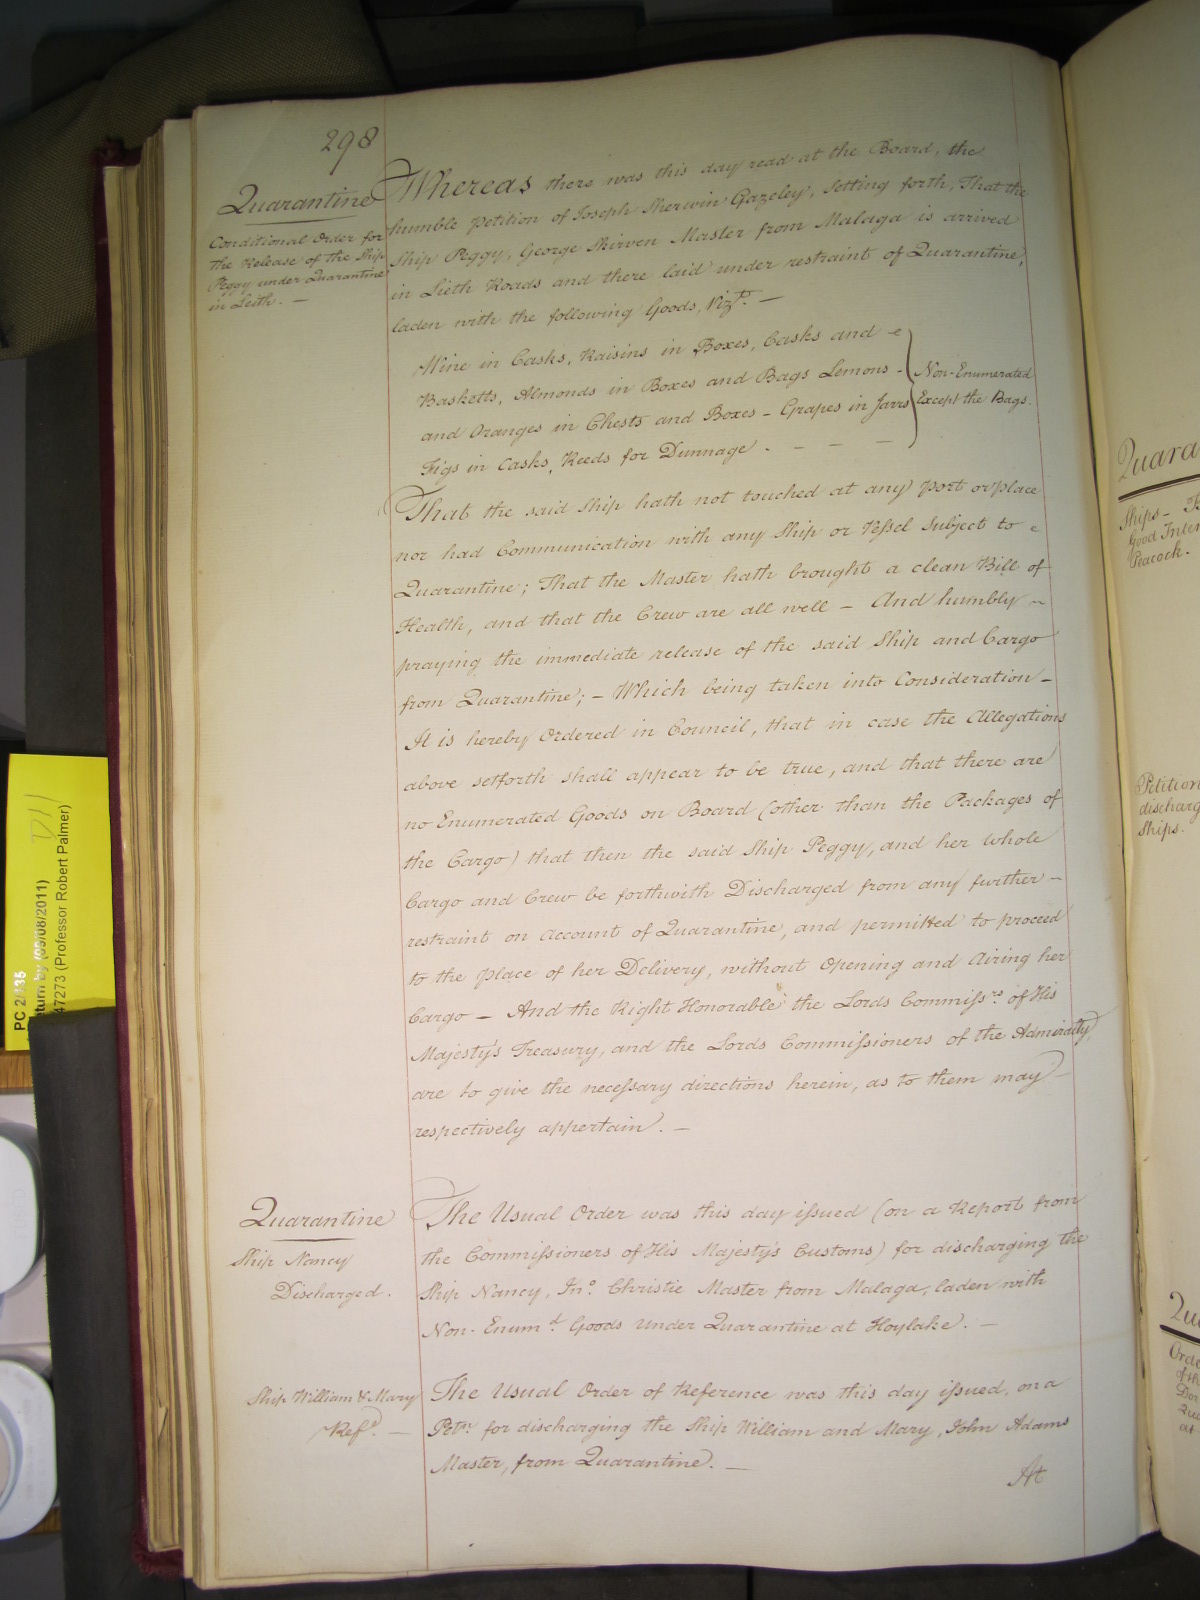 298
Quarantine
Conditional Order for
the Release of the Ship
Peggy under Quarantine
in Leith. —
Whereas there was this day read at the Board, the
humble Petition of Joseph Sherwin Gazeley, Setting forth, That the
Ship Peggy, George Skirven Master from Malaga is arrived
in Lieth Roads and there laid under restraint of Quarantine,
laden with the following Goods, Vizt. —
Wine in Casks, Raisins in Boxes, Casks and
Basketts, Almonds in Boxes and Bags Lemons -
and Oranges in Chests and Boxes - Grapes in Jarrs
Figs in Casks, Reeds for Dunnage. - - -
Non-Enumerated
Except the Bags.
That the said Ship hath not touched at any port or place
nor had Communication with any Ship or Vessel Subject to
Quarantine; That the Master hath brought a clean Bill of
Health, and that the Crew are all well — And humbly ~
praying the immediate release of the said Ship and Cargo
from Quarantine; - Which being taken into Consideration -
It is hereby Ordered in Council, that in case the Allegations
above setforth shall appear to be true, and that there are
no Enumerated Goods on Board (other than the Packages of
the Cargo) that then the said Ship Peggy, and her whole
Cargo and Crew be forthwith Discharged from any further -
restraint on Account of Quarantine, and permitted to proceed
to the place of her Delivery, without Opening and Airing her
Cargo — And the Right Honorable the Lords Commissrs. of His
Majesty's Treasury, and the Lords Commissioners of the Admiralty,
are to give the necessary directions herein, as to them may
respectively appertain. —
Quarantine
Ship Nancy
Discharged.
The Usual Order was this day issued (on a Report from
the Commissioners of His Majesty's Customs) for discharging the
Ship Nancy, Jno. Christie Master from Malaga, laden with
Non-Enumd. Goods under Quarantine at Hoylake. —
Ship William & Mary
Refd. —
The Usual Order of Reference was this day issued, on a
Petn. for discharging the Ship William and Mary, John Adams
Master, from Quarantine. —
At
PC 2/135
turn by (09/08/2011)
47273 (Professor Robert Palmer)
Quara
Ships -
Good Inten
Peacock.
Petition
discharg
Ships.
Qu
Orde
of th
at